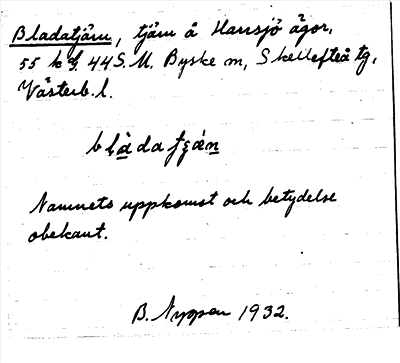 Bladatjärn, tjärn å Harrsjö ägor,
55 k f. 44 S. M. Byske m, Skellefteå tg,
Västerb. l.
blàda tjä́n
Namnets uppkomst och betydelse
obekant.
B. Nyppen 1932.